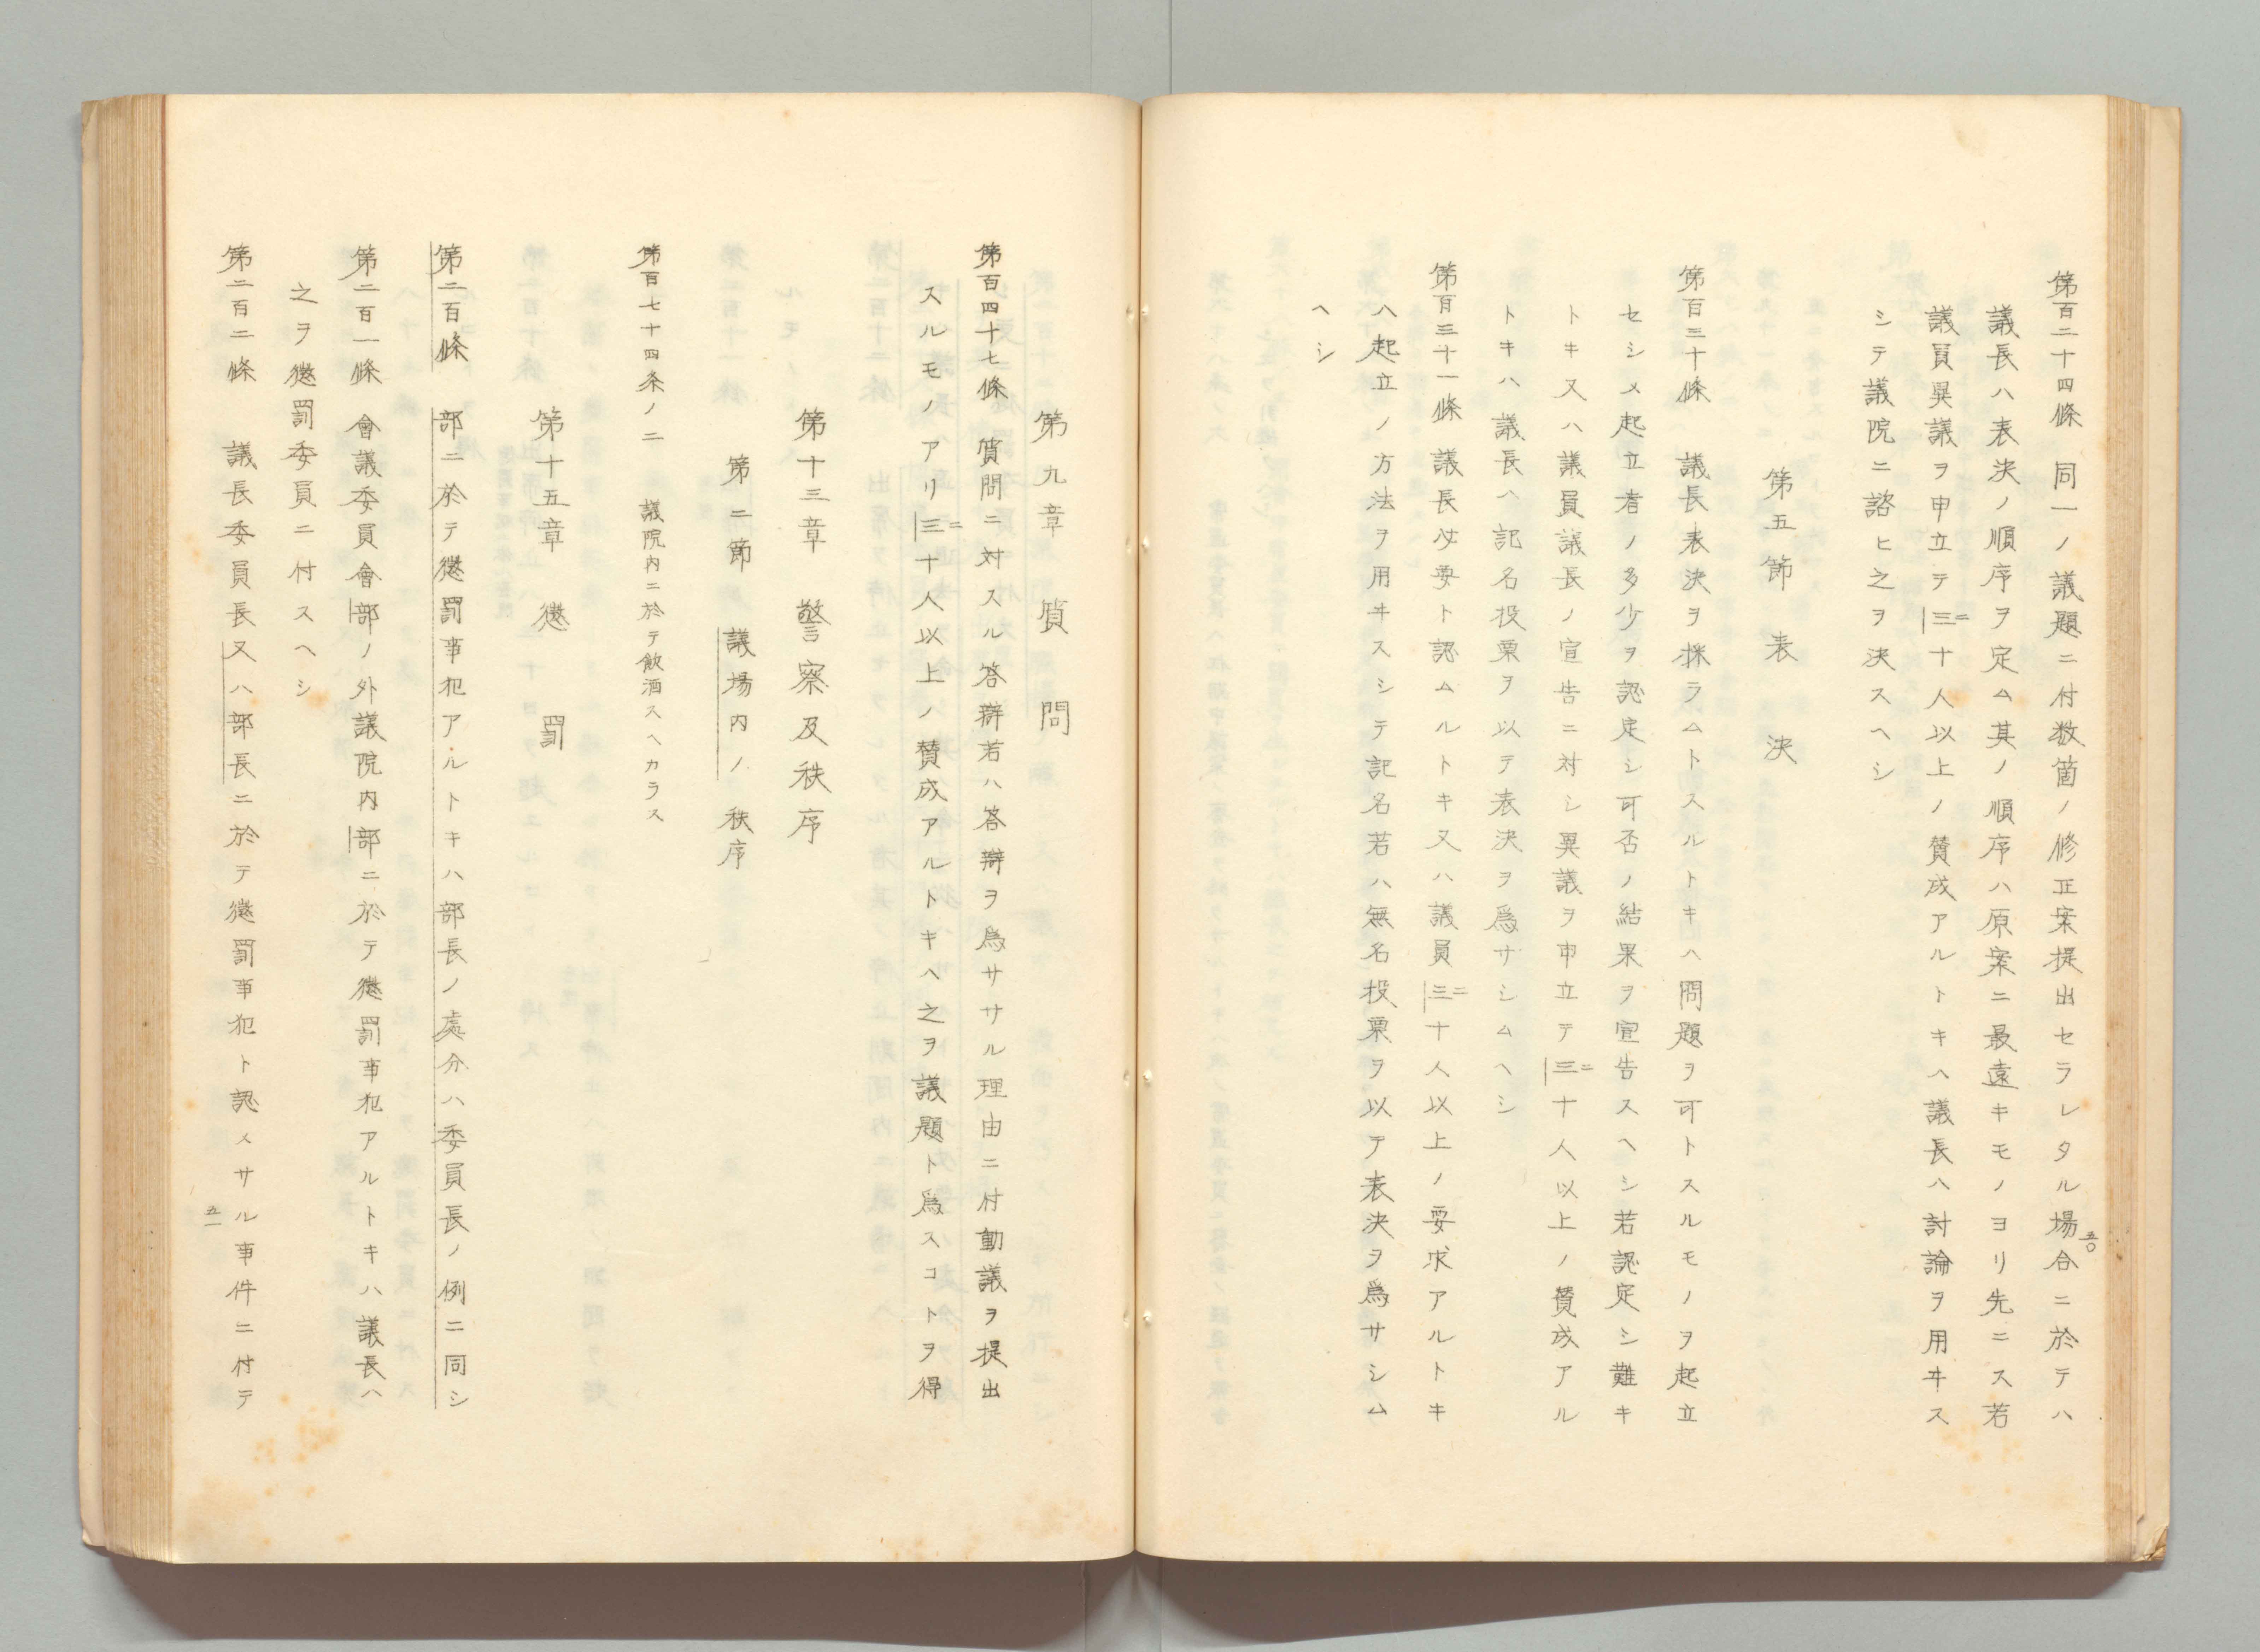 第百二十四條　同一ノ議題ニ付数箇ノ修正案提出セラレタル場合ニ於テハ
議長ハ表決ノ順序ヲ定ム其ノ順序ハ原案ニ最遠キモノヨリ先ニス若
議員異議ヲ申立テ三ニ十人以上ノ賛成アルトキハ議長ハ討論ヲ用ヰス
シテ議院ニ諮ヒ之ヲ決スヘシ
第五節　表決
第百三十條　議長表決ヲ採ラムトスルトキハ問題ヲ可トスルモノヲ起立
セシメ起立者ノ多少ヲ認定シ可否ノ結果ヲ宣告スヘシ若認定シ難キ
トキ又ハ議員議長ノ宣告ニ対シ異議ヲ申立テ三ニ十人以上ノ賛成アル
トキハ議長ハ記名投票ヲ以テ表決ヲ為サシムヘシ
第百三十一條　議長必要ト認ムルトキ又ハ議員三ニ十人以上ノ要求アルトキ
ハ起立ノ方法ヲ用ヰスシテ記名若ハ無名投票ヲ以テ表決ヲ爲サシム
ヘシ
五〇
第九章　質問
第百四十七條　質問ニ対スル答辯若ハ答辯ヲ爲ササル理由ニ付動議ヲ提出
スルモノアリ三ニ十人以上ノ賛成アルトキハ之ヲ議題ト爲スコトヲ得
第十三章　警察及秩序
第二節　議場内ノ秩序
第百七十四条ノ二　議院内ニ於テ飲酒スヘカラス
第十五章　懲罰
第二百條　部ニ於テ懲罰事犯アルトキハ部長ノ處分ハ委員長ノ例ニ同シ
第二百一條　會議委員會部ノ外議院内部ニ於テ懲罰事犯アルトキハ議長ハ
之ヲ懲罰委員ニ付スヘシ
第二百二條　議長委員長又ハ部長ニ於テ懲罰事犯ト認メサル事件ニ付テ
五一